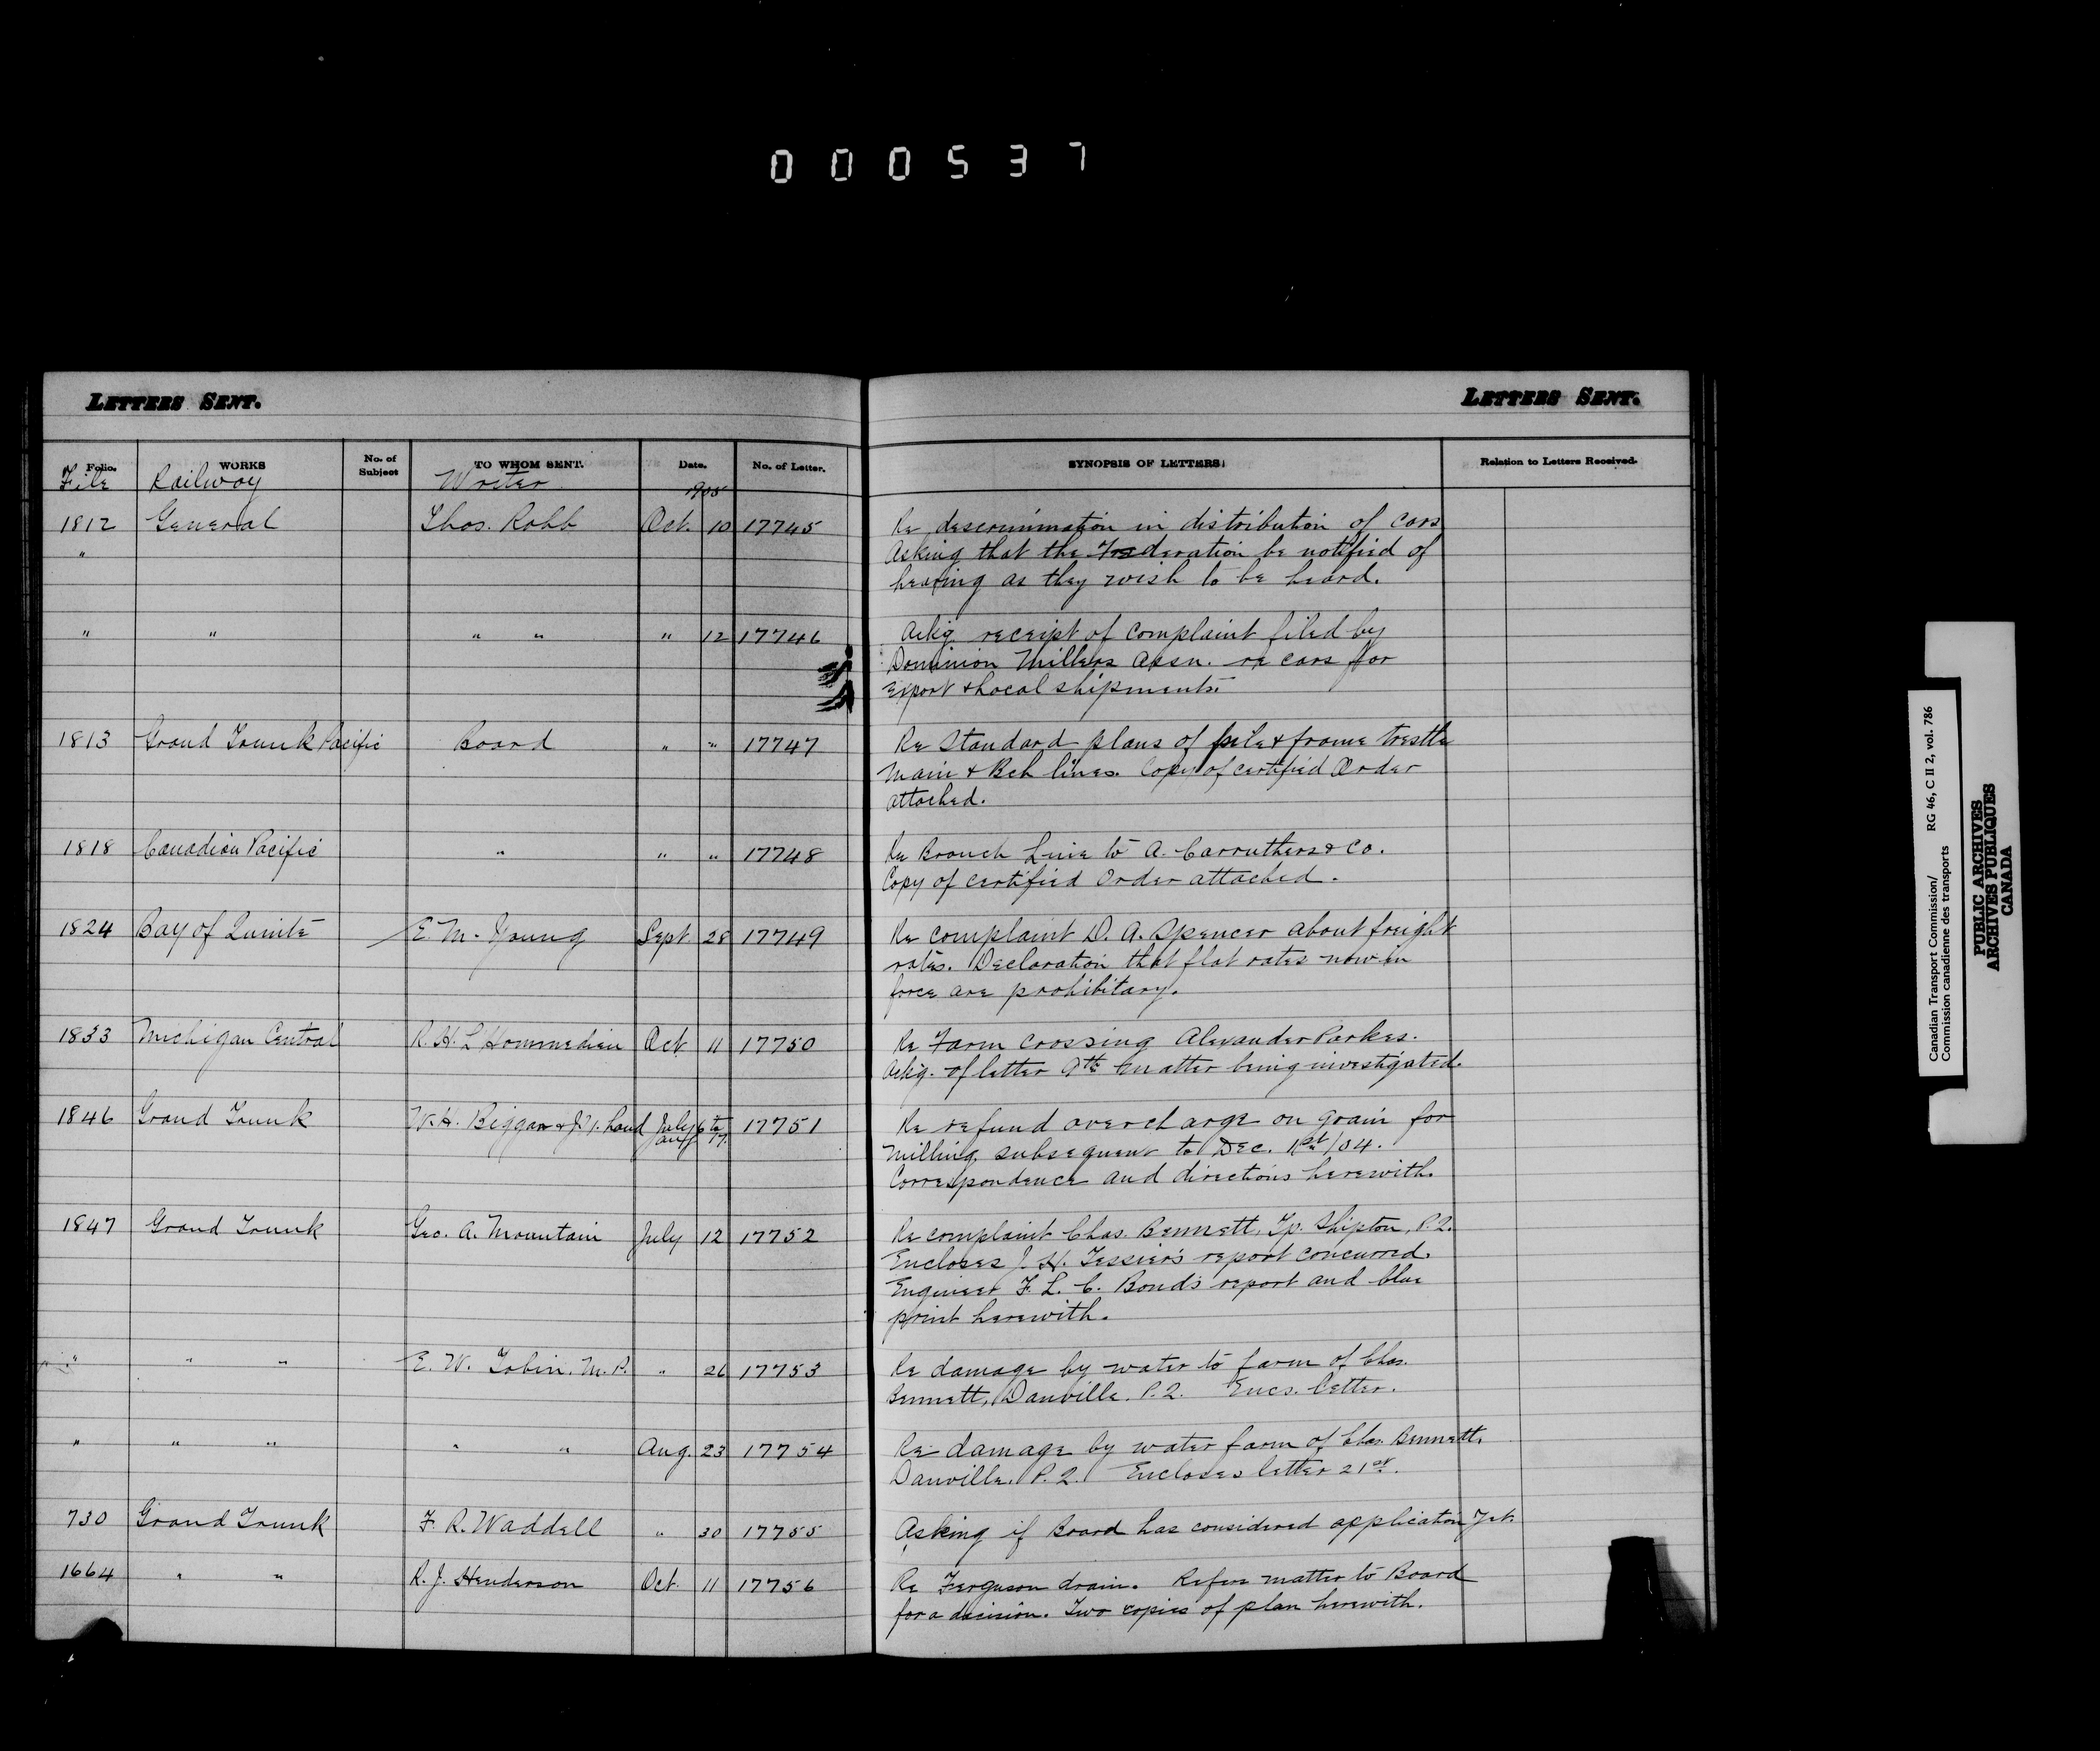 000537
LETTERS SENT.
LETTERS SENT.
Folio. WORKS No. of Subject TO WHOM SENT. Date. No. of Letter. SYNOPSIS OF LETTERS. Relation to Letters Received.
File Railway Writer 1905
1812 General Thos. Robb Oct. 10 17745 Re descrimination in distribution of cars
" Asking that the Federation be notified of
hearing as they wish to be heard.
" " " " " 12 17746 Ackg. receipt of complaint filed by
Dominion Millers Assn. re cars for
Export & Local shipments.
1813 Grand Trunk Pacific Board " " 17747 Re Standard plans of pile & frame trestle
Main & Bch lines. Copy of certified Order
attached.
1818 Canadian Pacific " " " 17748 Re Branch Line to A. Carruthers & Co.
Copy of certified Order attached.
1824 Bay of Quinte E. M. Young Sept 28 17749 Re complaint D. A. Spencer about freight
rates. Declaration that flat rates now in
force are prohibitary.
1833 Michigan Central R. H. L'Hommedieu Oct 11 17750 Re Farm crossing Alexander Parkes.
Ackg. of letter 9th matter being investigated.
1846 Grand Trunk W. H. Biggar & J. Y. Loud July 6 to Aug. 17. 17751 Re refund overcharge on grain for
Milling subsequent to Dec. 1st/04.
Correspondence and directions herewith.
1847 Grand Trunk Geo. A. Mountain July 12 17752 Re complaint Chas. Bennett, Tp. Shipton, P.Q.
Encloses J. H. Tessier's report concurred.
Engineer F. L. C. Bond's report and blue
print herewith.
" " " E. W. Tobin, M.P. " 26 17753 Re damage by water to farm of Chas.
Bennett, Danville, P.Q. Encs. letter.
" " " " " Aug. 23 17754 Re damage by water farm of Chas. Bennett,
Danville, P.Q. Encloses letter 21st.
730 Grand Trunk F. R. Waddell " 30 17755 Asking if Board has considered application yet.
1664 " " R. J. Henderson Oct. 11 17756 Re Ferguson drain. Refers matter to Board
for a decision. Two copies of plan herewith.
Canadian Transport Commission/ RG 46, C II 2, vol. 786
Commission canadienne des transports
PUBLIC ARCHIVES
ARCHIVES PUBLIQUES
CANADA